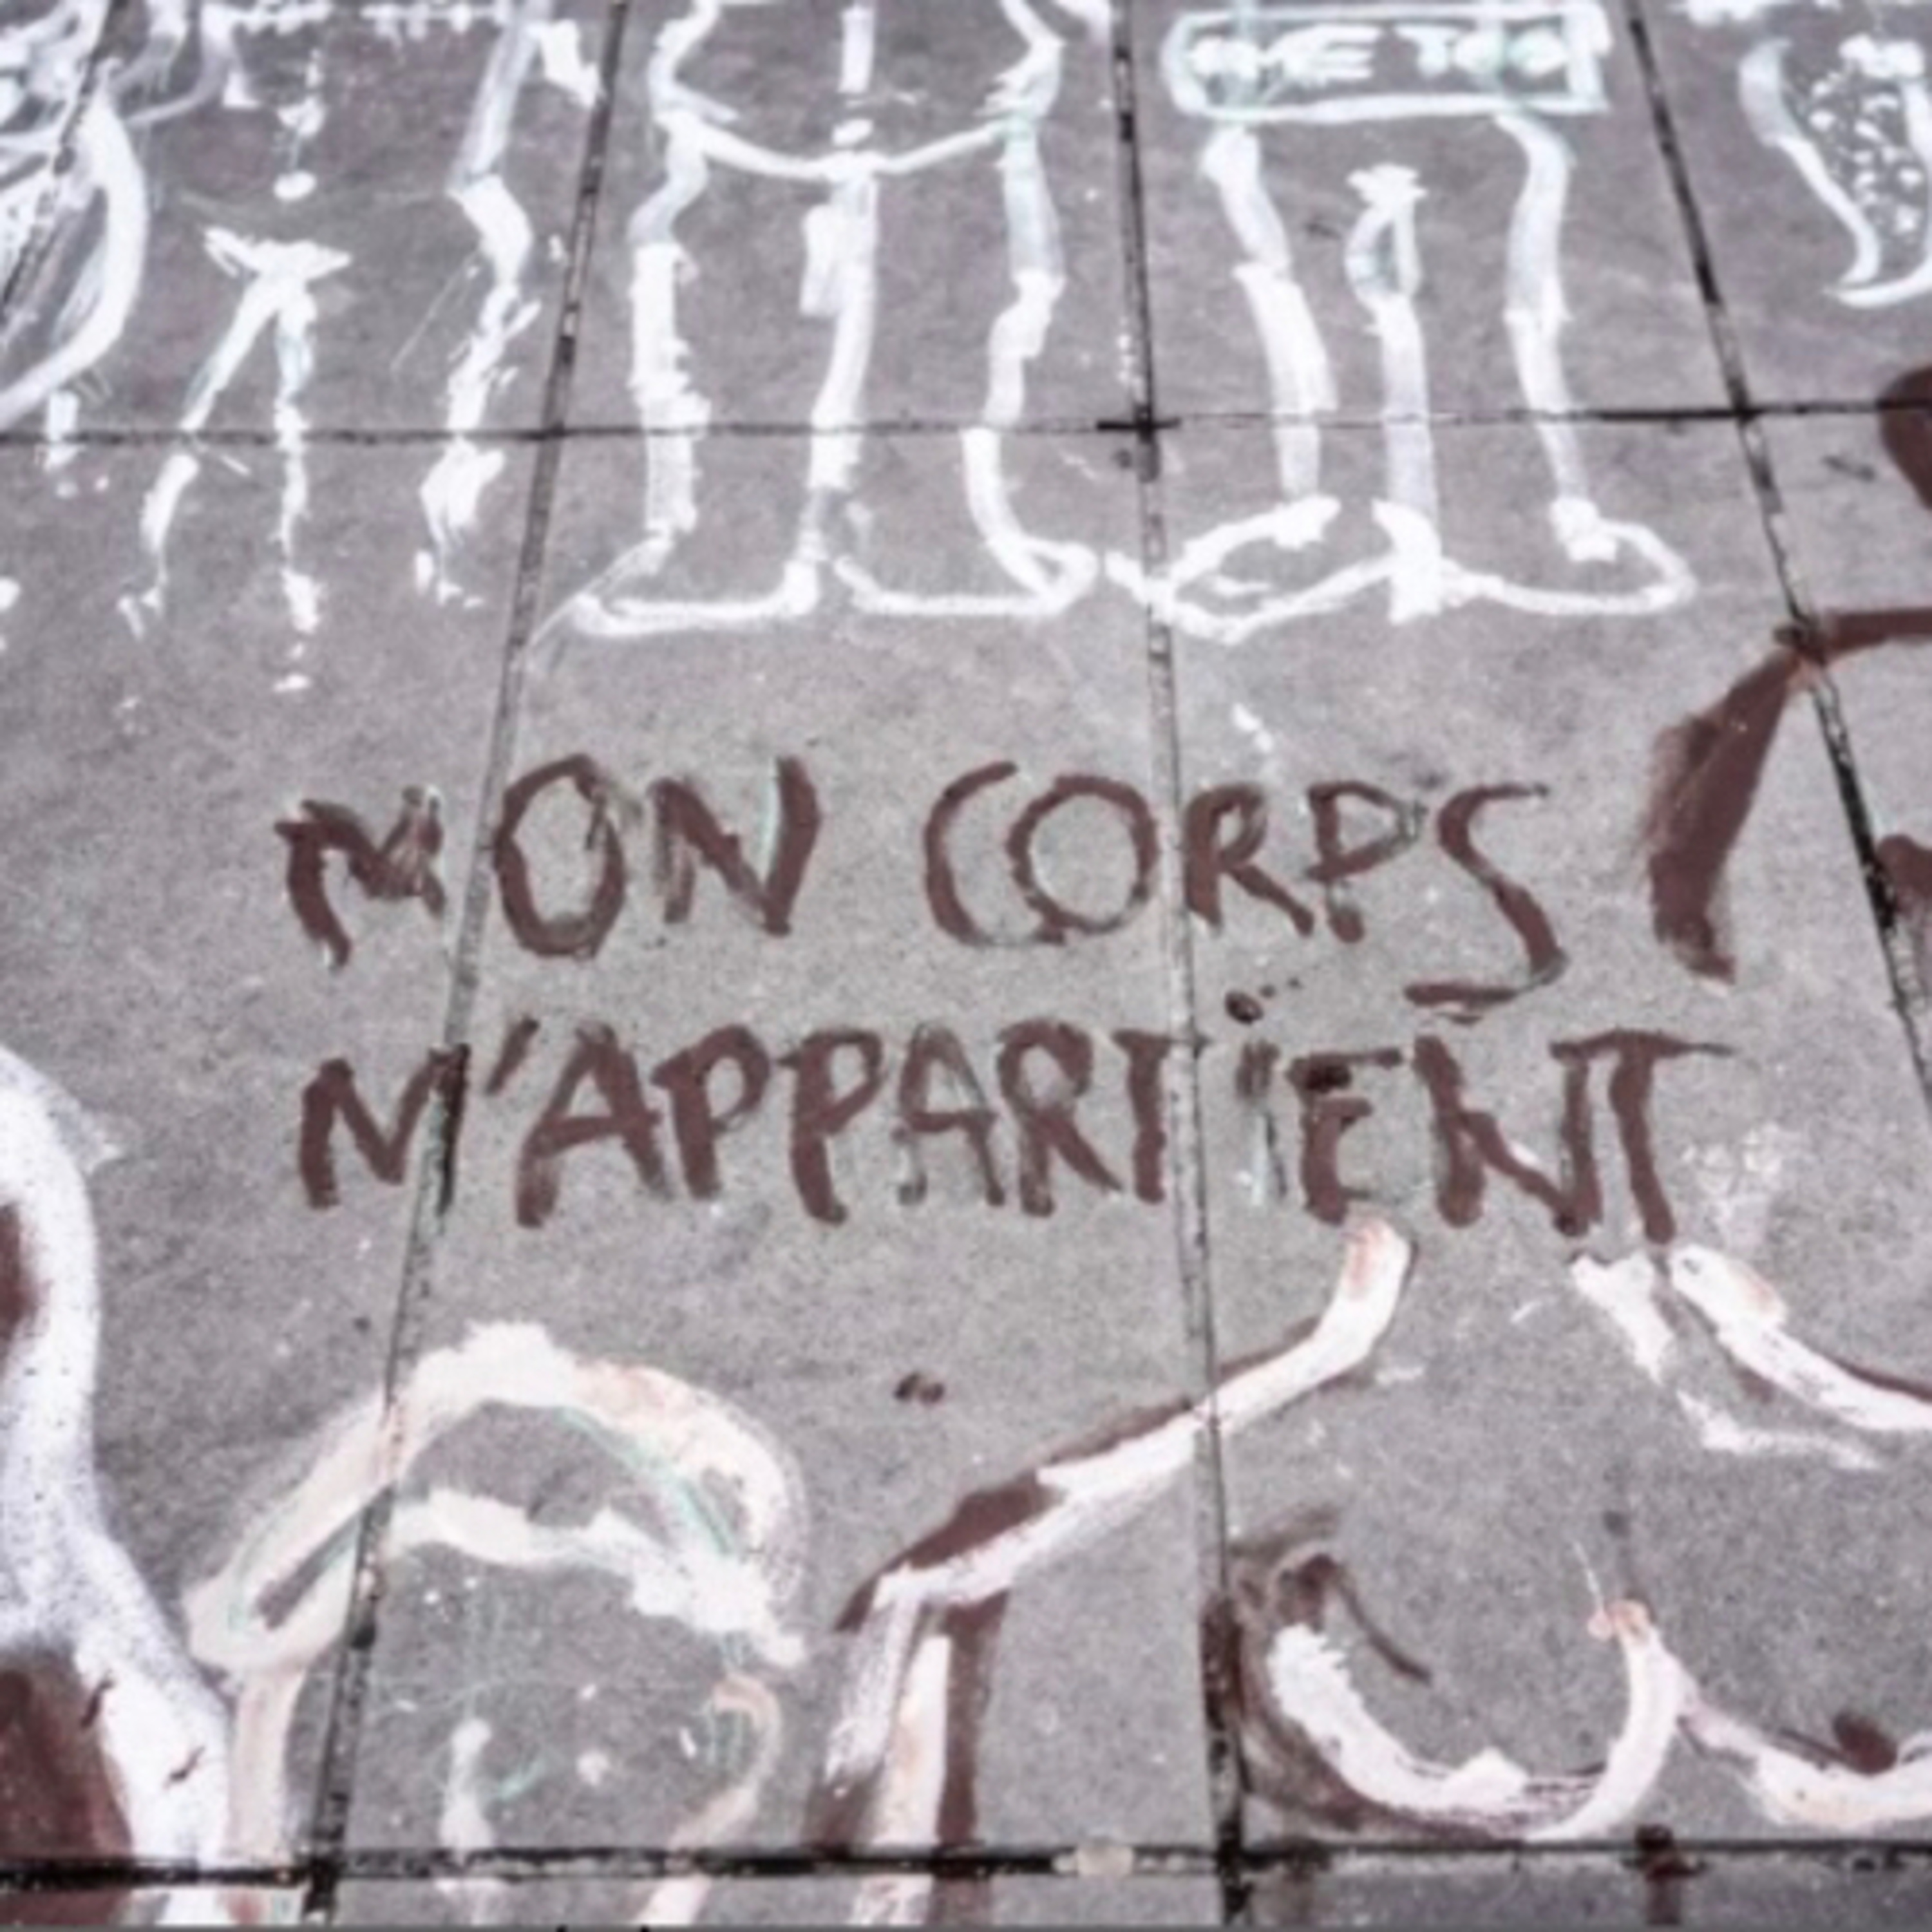 ME TOO
MON CORPS
M'APPARTIENT